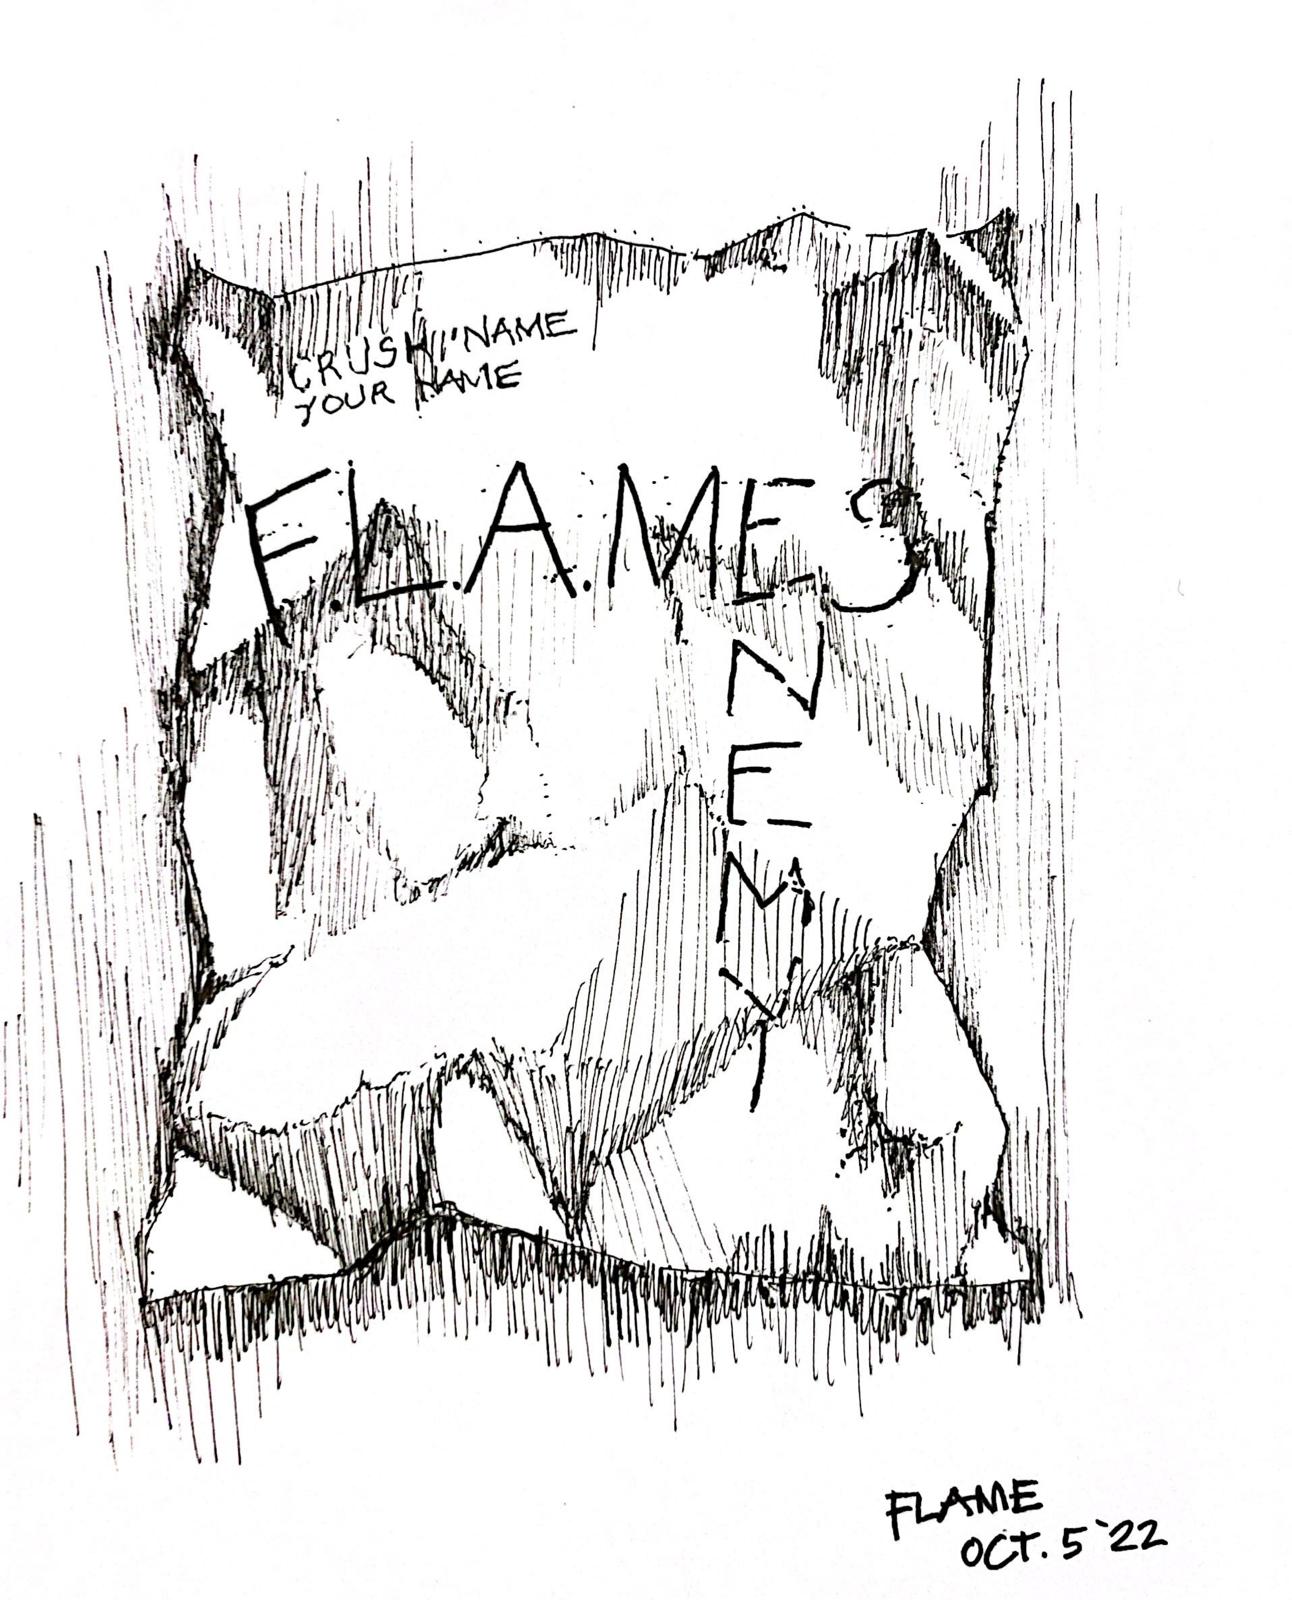 CRUSH'NAME
YOUR NAME
F.L.A.MES
N
E
M
Y
FLAME
OCT. 5 '22